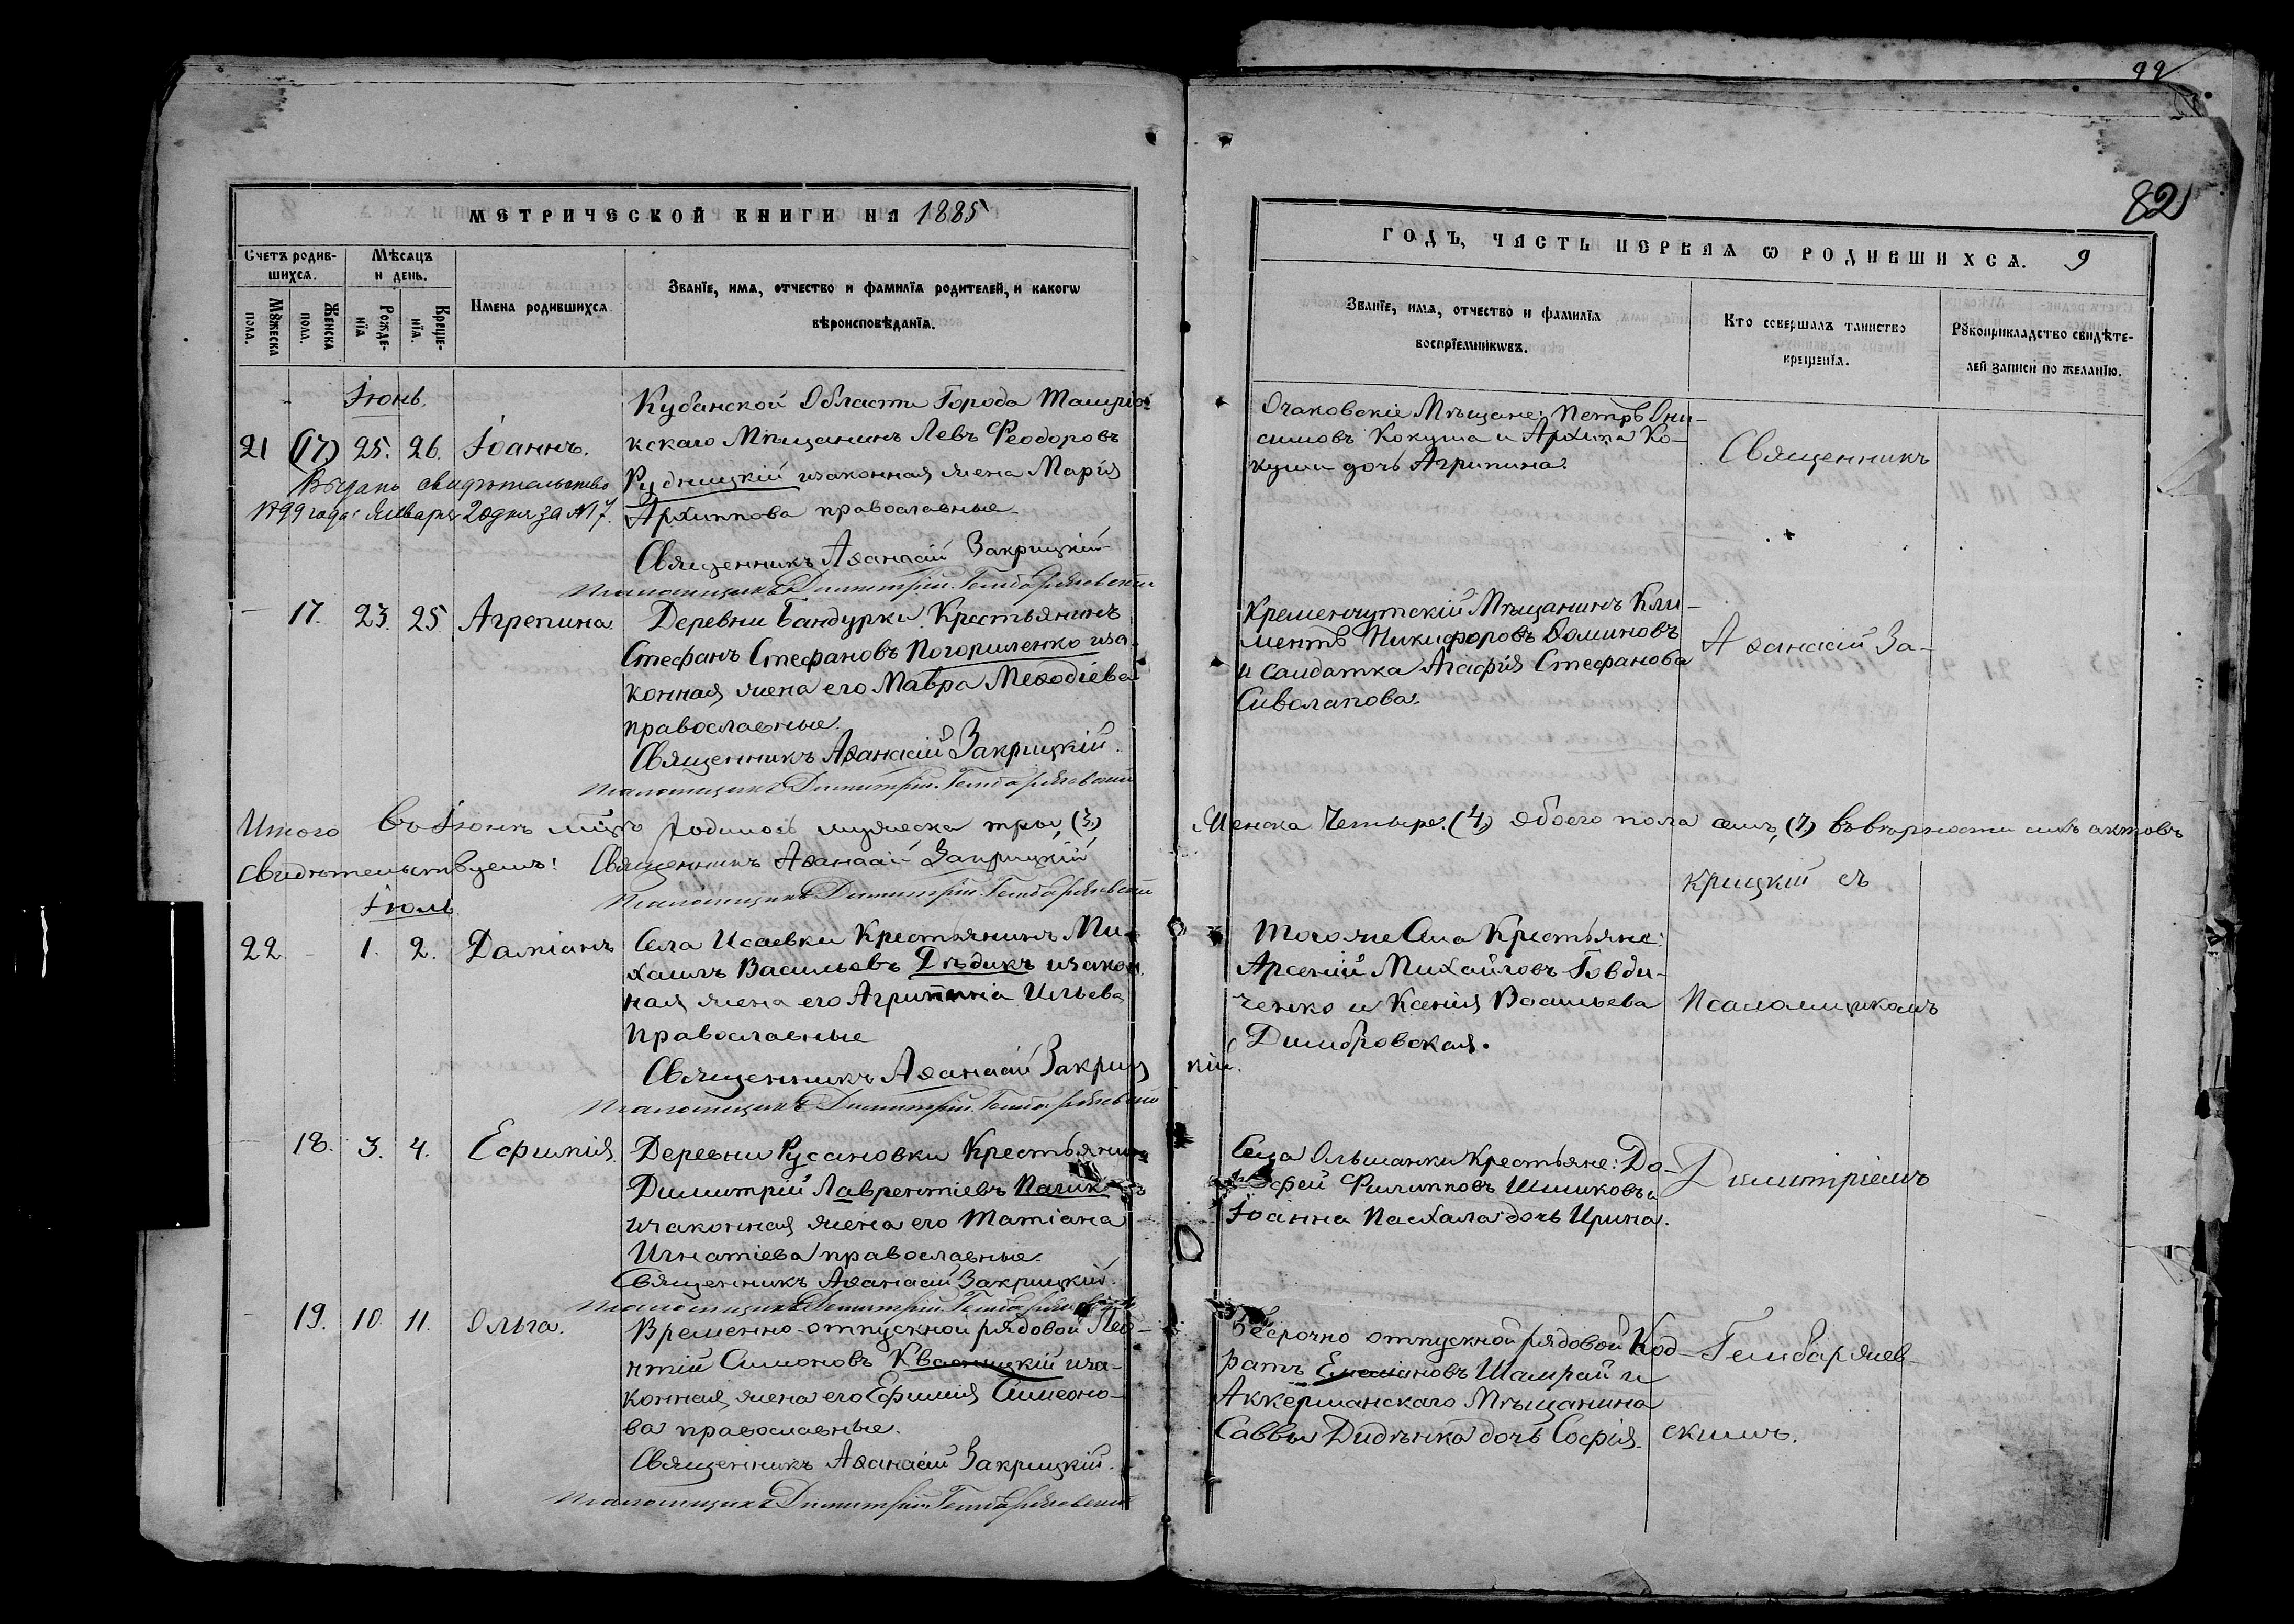 МЕТРИЧЕСКОЙ КНИГИ НА 1885
Счетъ родившихся.
Мѣсяцъ и день.
Имена родившихся
Званїе, имя, отчество и фамилїя родителей, и какогѡ
вѣроисповѣданїя.
Мꙋжеска пола.
Женска пола.
Рожденїя
Крещенїя.
Іюнь.
Кубанской Области Города
21 (17) 25. 26. Іоаннъ.
кскаго Мѣщанинъ Левъ Ѳеодоровъ
Рудницкій изаконная жена Марія
Архиппова православные
Выдано свидѣтельство
1899 года Января 20 дня за №17.
Священникъ Аѳанасій Закрицкій
Псаломщикъ Димитрій Гембаржевскій
— 17. 23. 25 Агрепина
Деревни Бандурки Крестьянинъ
Стефанъ Стефановъ Погориленко иза
конная жена его Мавра Меѳодіева
православные.
Священникъ Аѳанасій Закрицкій.
Псаломщикъ Димитрій Гембаржевскій
Итого въ Іюнѣ м͠цѣ родилось мужеска три (3)
свидѣтельствуемъ: Священникъ Аѳанасій Закрицкій
Псаломщикъ Димитрій Гембаржевскій
Іюль
22 - 1. 2. Даміанъ
Села Исаевки Крестьянинъ Ми-
хаилъ Васильевъ Дѣдикъ изакон
ная жена его Агрипина Ильева
Православные
Священникъ Аѳанасій Закриц кій.
Псаломщикъ Димитрій Гембаржевскій
18. 3. 4. Ефимія
Деревни Русановки Крестьянинъ
Димитрій Лаврентіевъ
изаконная жена его Татіана
Игнатіева православные.
Священникъ Аѳанасій Закрицкій.
Псаломщикъ Димитрій Гембаржевскій
- 19. 10. 11. Ольга.
Временно-отпускной рядовой Лео-
нтій Симоновъ Квасницкій иза-
конная жена его Ефимія Симеоно-
ва православные.
Священникъ Аѳанасій Закрицкій.
Псаломщикъ Димитрій Гембаржевскій
99
82
ГОДЪ, ЧАСТЬ ПЕРВАЯ Ѡ РОДИВШИХСЯ. 9
Званїе, имя, отчество и фамилїя
воспрїемникѡвъ.
Кто совершалъ таинство
крещенїя.
Рꙋкоприкладство свидѣте-
лей записи по желанїю.
Очаковскіе Мѣщане: Петръ Они-
симовъ Кокуша и Архипа Ко-
куши дочь Агрипина.
Священникъ
Кременчугскій Мѣщанинъ Кли-
ментъ Никифоровъ Ѳоминовъ
и солдатка Агафія Стефанова
Сиволапова.
Аѳанасій За-
Женска Четыре (4) обоего пола семь (7) въ вѣрности сихъ актовъ
крицкій съ
Тогоже Села Крестьяне:
Арсеній Михайловъ Говди-
ченко и Ксенія Васильева
Димбровская.
Псаломщикомъ
Села Ольшанки Крестьяне: До-
сифей Филипповъ Шишковъ и
Іоанна Пасхала дочь Ирина.
Димитріемъ
Безсрочно отпускной рядовой Код-
ратъ Шамрай и
Аккерманскаго Мѣщанина
Саввы Дидѣнка дочь Софія.
Гембаржев-
скимъ.